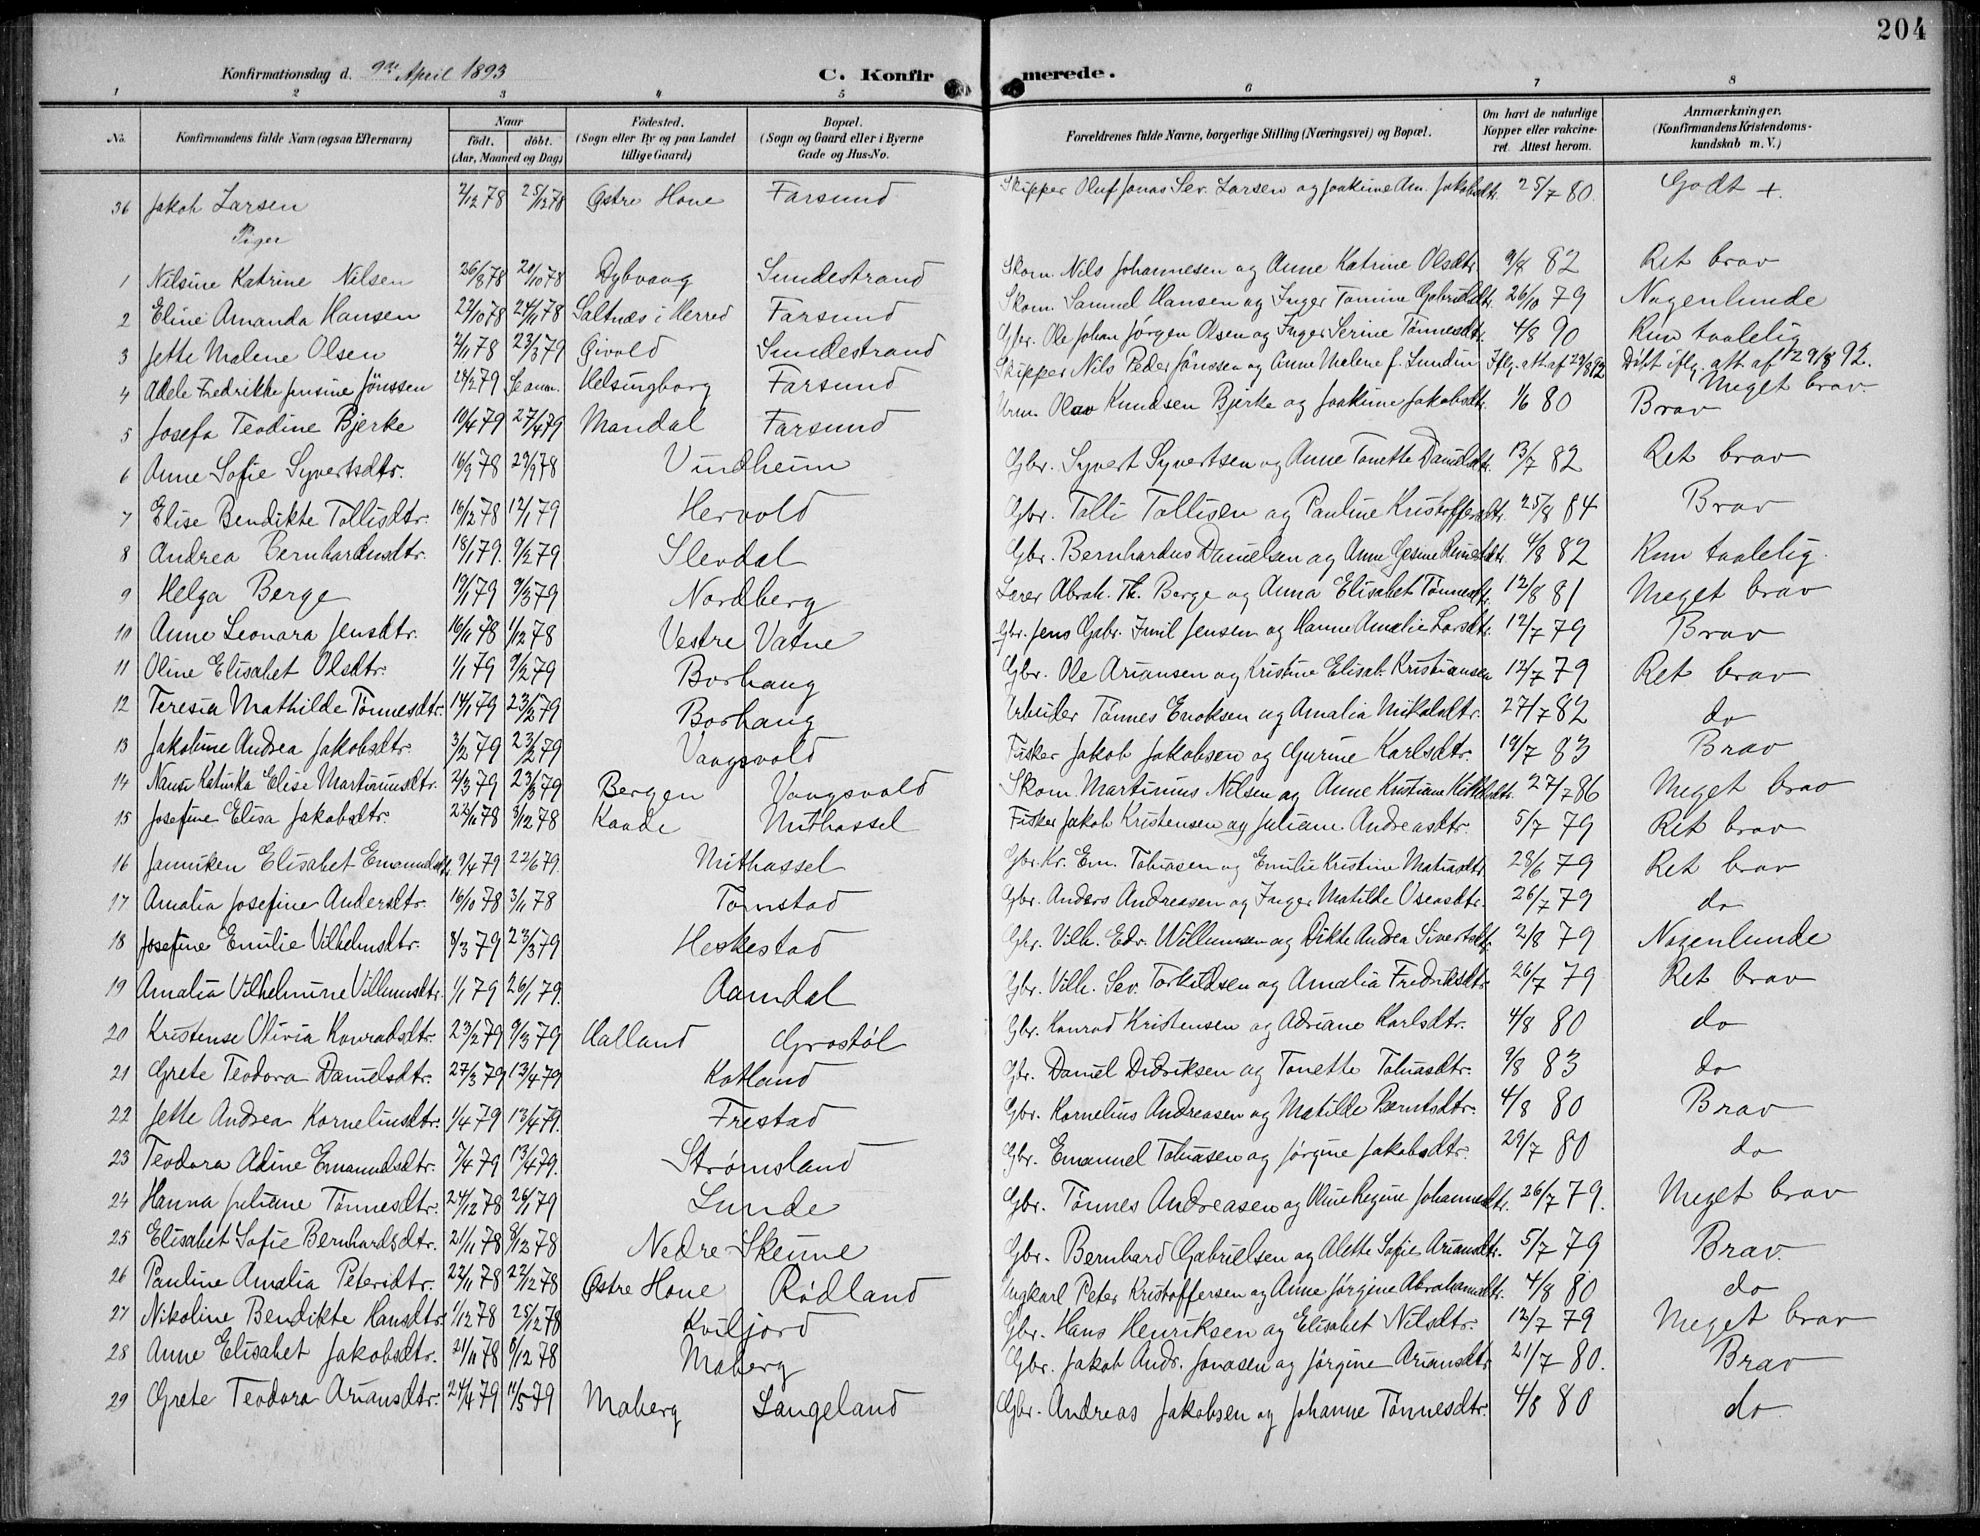 204
Konfirmationsdag d. 9de April 1893
C. Konfirmerede.
1 2 3 4 5 6 7 8
No. Konfirmandens fulde Navn (ogsaa Efternavn) Naar født. døbt. (Aar, Maaned og Dag) Fødested. (Sogn eller By og paa Landet tillige Gaard) Bopæl. (Sogn og Gaard eller i Byerne Gade og Hus-No. Forældrenes fulde Navne, borgerlige Stilling (Næringsvei) og Bopæl. Om havt de naturlige Kopper eller vakcineret. Attest herom. Anmærkninger. (Konfirmandens Kristendomskundskab m. V.)
36 Jakob Larsen 2/12 78 25/12 78 Østre Hone Farsund Skipper Oluf Jonas Sev. Larsen og Joakime Am. Jakobsdtr. 25/7 80. Godt +.
Piger
1 Nilsine Katrine Nilsen 26/8 78 20/10 78 Dybvaag Sundestrand Skom. Nils Johannesen og Anne Katrine Olsdtr. 9/8 82 Ret brav
2 Eline Amanda Hansen 22/10 78 24/11 78 Saltnæs i Herred Farsund Skom. Samuel Hansen og Inger Tomine Gabrielsdtr. 26/10 79 Nogenlunde
3 Jette Malene Olsen 2/11 78 23/3 79 Givold Sundestrand Gbr. Ole Johan Jørgen Olsen og Inger Serine Tønnesdtr. 4/8 90 Kun taalelig
4 Adele Fredrikke Jensine Jönssen 28/2 79 S. anm. Helsingborg Farsund Skipper Nils Peder Jönssen og Anne Malene f. Lundin Iflg. att. af 29/8 92 Døbt iflg. att af 29/8 92. Meget brav
5 Josefa Teodine Bjerke 10/4 79 27/4 79 Mandal Farsund Urm. Olav Knudsen Bjerke og Joakime Jakobsdtr. 1/6 80 Brav
6 Anne Sofie Syvertsdtr. 16/9 78 29/9 78 Vindheim Gbr. Syvert Syvertsen og Anne Tonette Danielsdtr. 13/7 82 Ret brav
7 Elise Bendikte Tollisdtr. 16/12 78 12/1 79 Hervold Gbr. Tolli Tollisen og Pauline Kristoffersdtr. 25/8 84 Brav
8 Andrea Bernhardusdtr. 18/1 79. 9/2 79 Slevdal Gbr. Bernhardus Danielsen og Anne Gesine Reinertsdtr. 4/8 82 Kun taalelig.
9 Helga Berge 19/1 79 9/3 79 Nordberg Lærer Abrah. Th. Berge og Anna Elisabet Tønnesdtr. 12/8 81 Meget brav
10 Anne Leonora Jensdtr. 16/11 78 1/12 78 Vestre Vatne Gbr. Jens Gabr. Imil Jensen og Hanne Amalie Larsdtr. 12/7 79 Brav
11 Oline Elisabet Olsdtr. 1/1 79 9/2 79 Borhaug Gbr. Ole Ariansen og Kristine Elisab. Kristiansen 12/7 79 Ret brav
12 Teresia Mathilde Tønnesdtr. 14/1 79 23/2 79 Borhaug Arbeider Tønnes Enoksen og Amalia Mikalsdtr. 27/7 82 do
13 Jakobine Andrea Jakobsdtr. 3/2 79 23/2 79 Vaagsvold Fisker Jakob Jakobsen og Gurine Karlsdtr. 19/7 83 Brav
14 Nansi Katinka Elise Martiniusdtr. 2/3 79 23/3 79 Bergen Vaagsvold Skom. Martinius Nilsen og Anne Kristiane Kittelsdtr. 27/7 86 Meget brav
15 Josefine Elisa Jakobsdtr. 22/11 78 3/12 78 Kaade Mithassel Fisker Jakob Kristensen og Juliane Andreasdtr. 5/7 79 Ret brav
16 Janniken Elisabet Emanuelsdtr. 9/4 79 22/6 79. Mithassel Gbr. Kr. Em. Tobiasen og Emilie Kristine Matiasdtr. 28/6 79 Ret brav
17 Amalia Josefine Andersdtr. 16/10 78 3/11 78 Tomstad Gbr. Anders Andreasen og Inger Matilde Oseasdtr. 26/7 79 do
18 Josefine Emilie Vilhelmsdtr. 8/3 79 23/3 79 Heskestad Gbr. Vilh. Edv. Willumsen og Dikte Andrea Sivertsdtr. 2/8 79 Nogenlunde
19 Amalia Vilhelmine Villumsdtr. 1/1 79 26/1 79. Aamdal Gbr. Vilh. Sev. Torkildsen og Amalia Fredriksdtr. 26/7 79 Ret brav
20 Kristense Olivia Konradsdtr. 23/2 79 9/3 79 Halland Grostøl Gbr. Konrad Kristensen og Adriane Karlsdtr. 4/8 80 do
21 Grete Teodora Danielsdtr. 27/3 79 13/4 79 Kotland Gbr. Daniel Didriksen og Tonette Tobiasdtr. 9/8 83 do
22 Jette Andrea Korneliusdtr. 1/4 79 13/4 79. Frestad Gbr. Kornelius Andreasen og Matilde Berntsdtr. 4/8 80 Brav
23 Teodora Adine Emanuelsdtr. 7/4 79 13/4 79. Strømsland Gbr. Emanuel Tobiasen og Jørgine Jakobsdtr. 29/7 80 do
24 Hanna Juliane Tønnesdtr. 24/12 78 26/1 79 Lunde Gbr. Tønnes Andreasen og Oline Regine Johannesdtr. 26/7 79. Meget brav
25 Elisabet Sofie Bernhardsdtr. 21/11 78 8/12 78 Nedre Skeime Gbr. Bernhard Gabrielsen og Alette Sofie Ariansdtr. 5/7 79 Brav
26 Pauline Amalia Petersdtr. 22/11 78 22/12 78 Østre Hone Rødland Ungkarl Peter Kristoffersen og Anne Jørgine Abrahamsdtr. 4/8 80 do
27 Nikoline Bendikte Hansdtr. 1/12 78 25/12 78 Kviljord Gbr. Hans Henriksen og Elisabet Nilsdtr. 12/7 79 Meget brav
28 Anne Elisabet Jakobsdtr. 21/11 78 6/12 78 Maberg Gbr. Jakob Andr. Jonasen og Jørgine Ariansdtr. 21/7 80. Brav
29 Grete Teodora Ariansdtr. 24/4 79 11/5 79 Maberg Langeland Gbr. Andreas Jakobsen og Johanne Tønnesdtr. 4/8 80 do